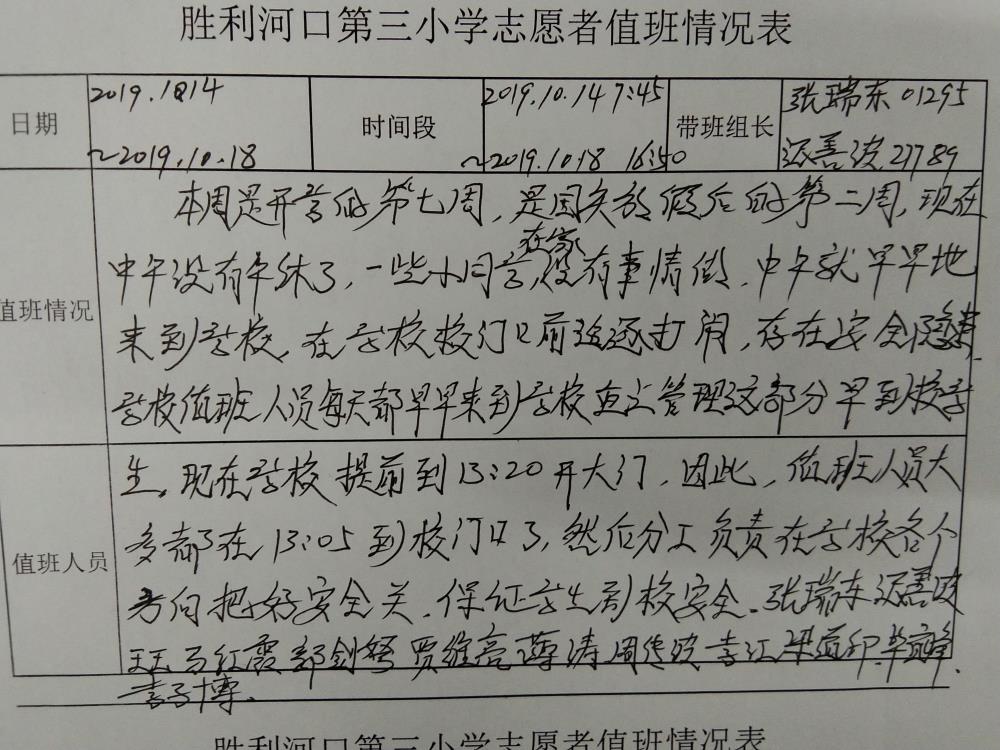 胜利河口第三小学志愿者值班情况表
日期 2019.10.14 ~2019.10.18 时间段 2019.10.14 7:45 ~2019.10.18 16:50 带班组长 张瑞东 01295 善波 27789
值班情况
本周是开学的第七周，是国庆放假后的第二周，现在
中午没有午休了，一些小同学在家没有事情做，中午就早早地
来到学校，在学校校门口前追逐打闹，存在安全隐患，
学校值班人员每天都早早来到学校重点管理这部分早到校学
值班人员
生。现在学校提前到13:20开大门，因此，值班人员大
多都在13:05到校门口了，然后分工负责在学校各个
方向把好安全关，保证学生到校安全。张瑞东 善波
王玉 马红霞 郭剑 贾维亮 薄涛 周传 李江 梁 毕 峰
李子博.
胜利河口第三小学志愿者值班情况表